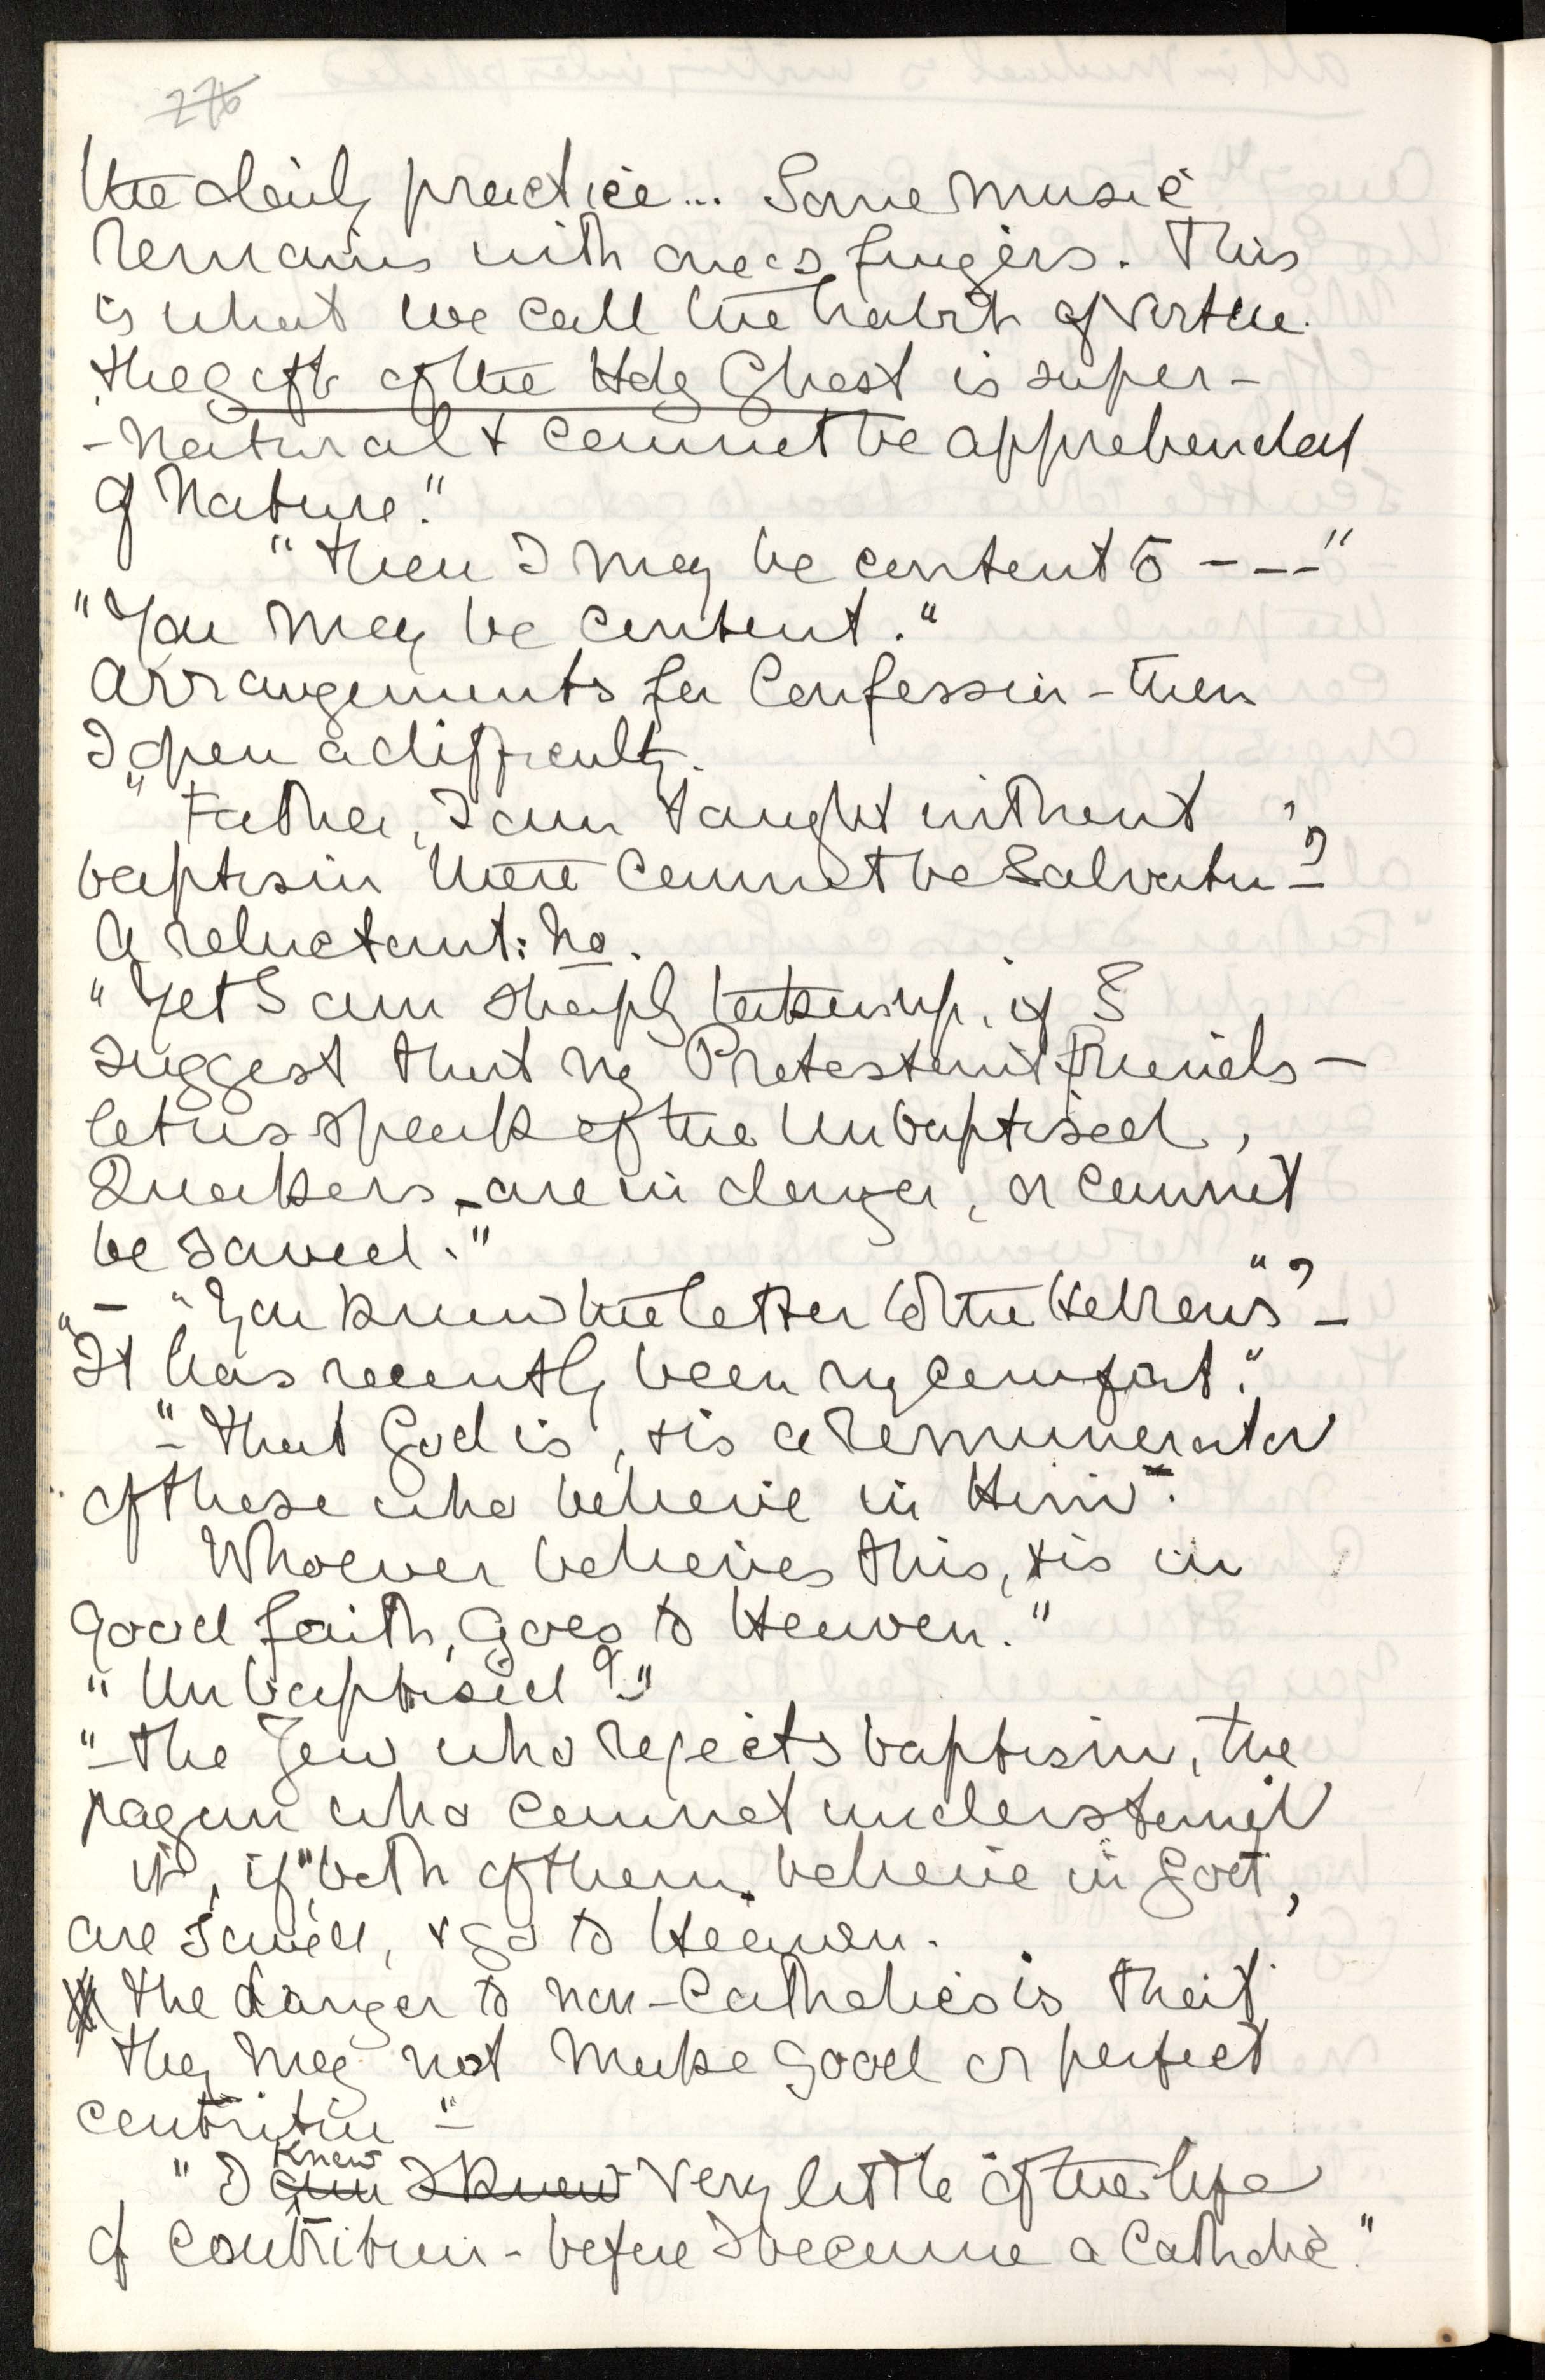 276
the daily practice... Some music
remains with one's fingers. This
is what we call the habit of virtue.
the gift of the Holy Ghost is super-
-natural & cannot be apprehended
of Nature."
"Then I may be content to ----"
"You may be content."
Arrangements for Confession - then
I open a difficulty.
"Father, I am taught without
baptism there cannot be Salvation"-?
A reluctant: No.
"Yet I am sharply taken up, if I
suggest that my Protestant friends -
let us speak of the Unbaptised,
Quakers - are in danger, or cannot
be saved."
"- "You know the letter to the Hebrews"? -
It has recently been my comfort."
"- that God is, & is a remunerator
of those who believe in Him".
Whoever believes this, & is in
good faith, goes to Heaven."
"Unbaptised?"
"- the Jew who rejects baptism, the
pagan who cannot understand
it, if both of them believe in God,
are saved, & go to Heaven.
the danger to non-Catholics is that
they may not make good or perfect
contrition "-
"I knew very little of the life
of contrition - before I became a Catholic."